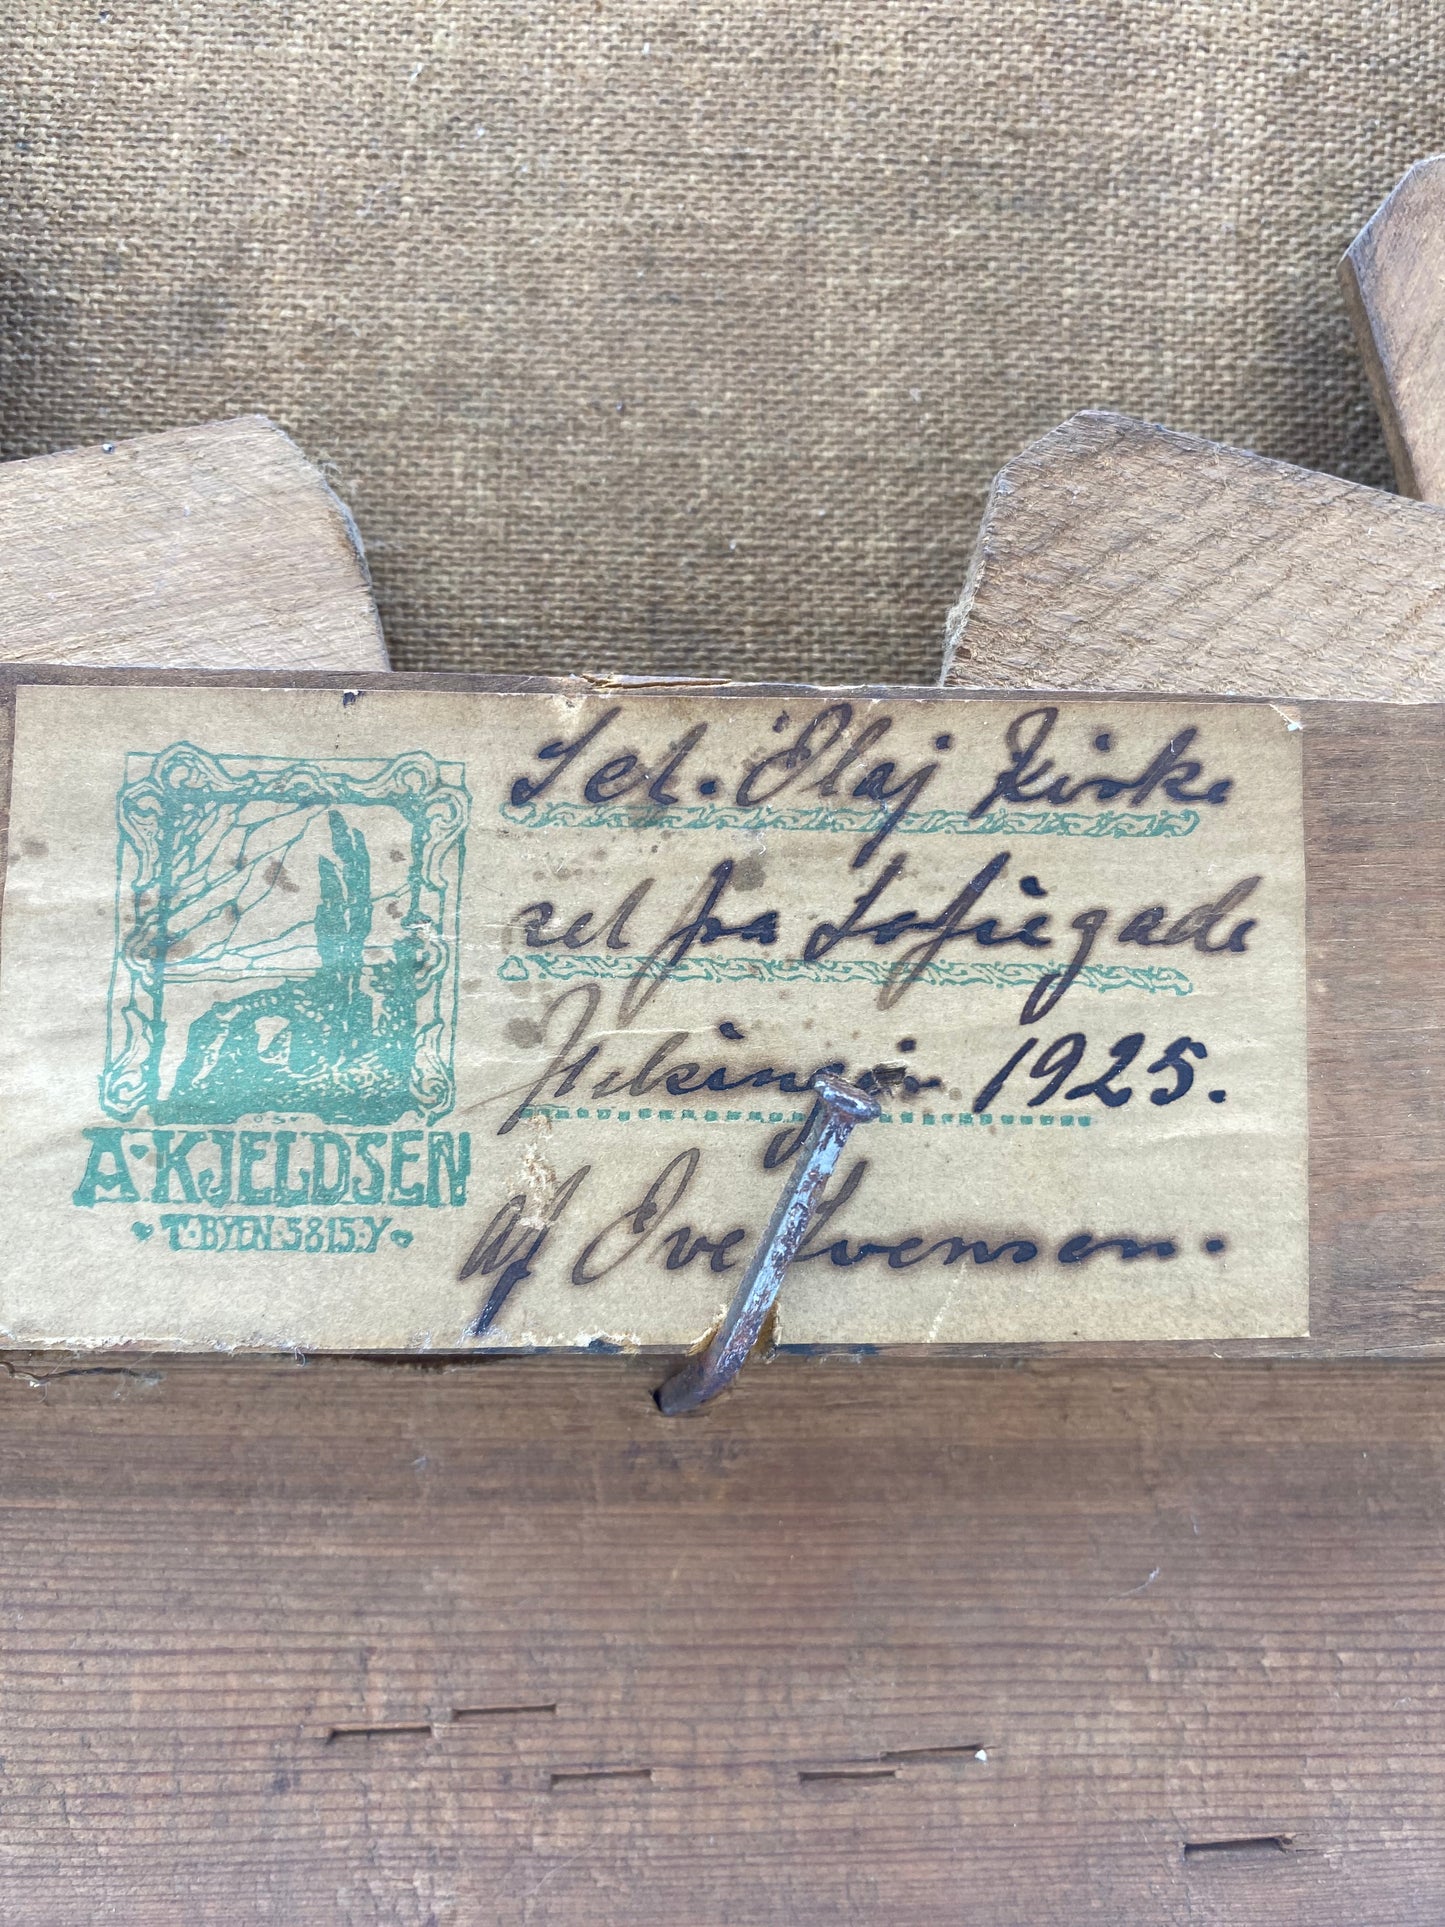 Sct. Olaj Kirke
set fra Sofiegade
Helsingør 1925.
af Ove Svensen.
A. KJELDSEN
T. BYEN. 5815. Y